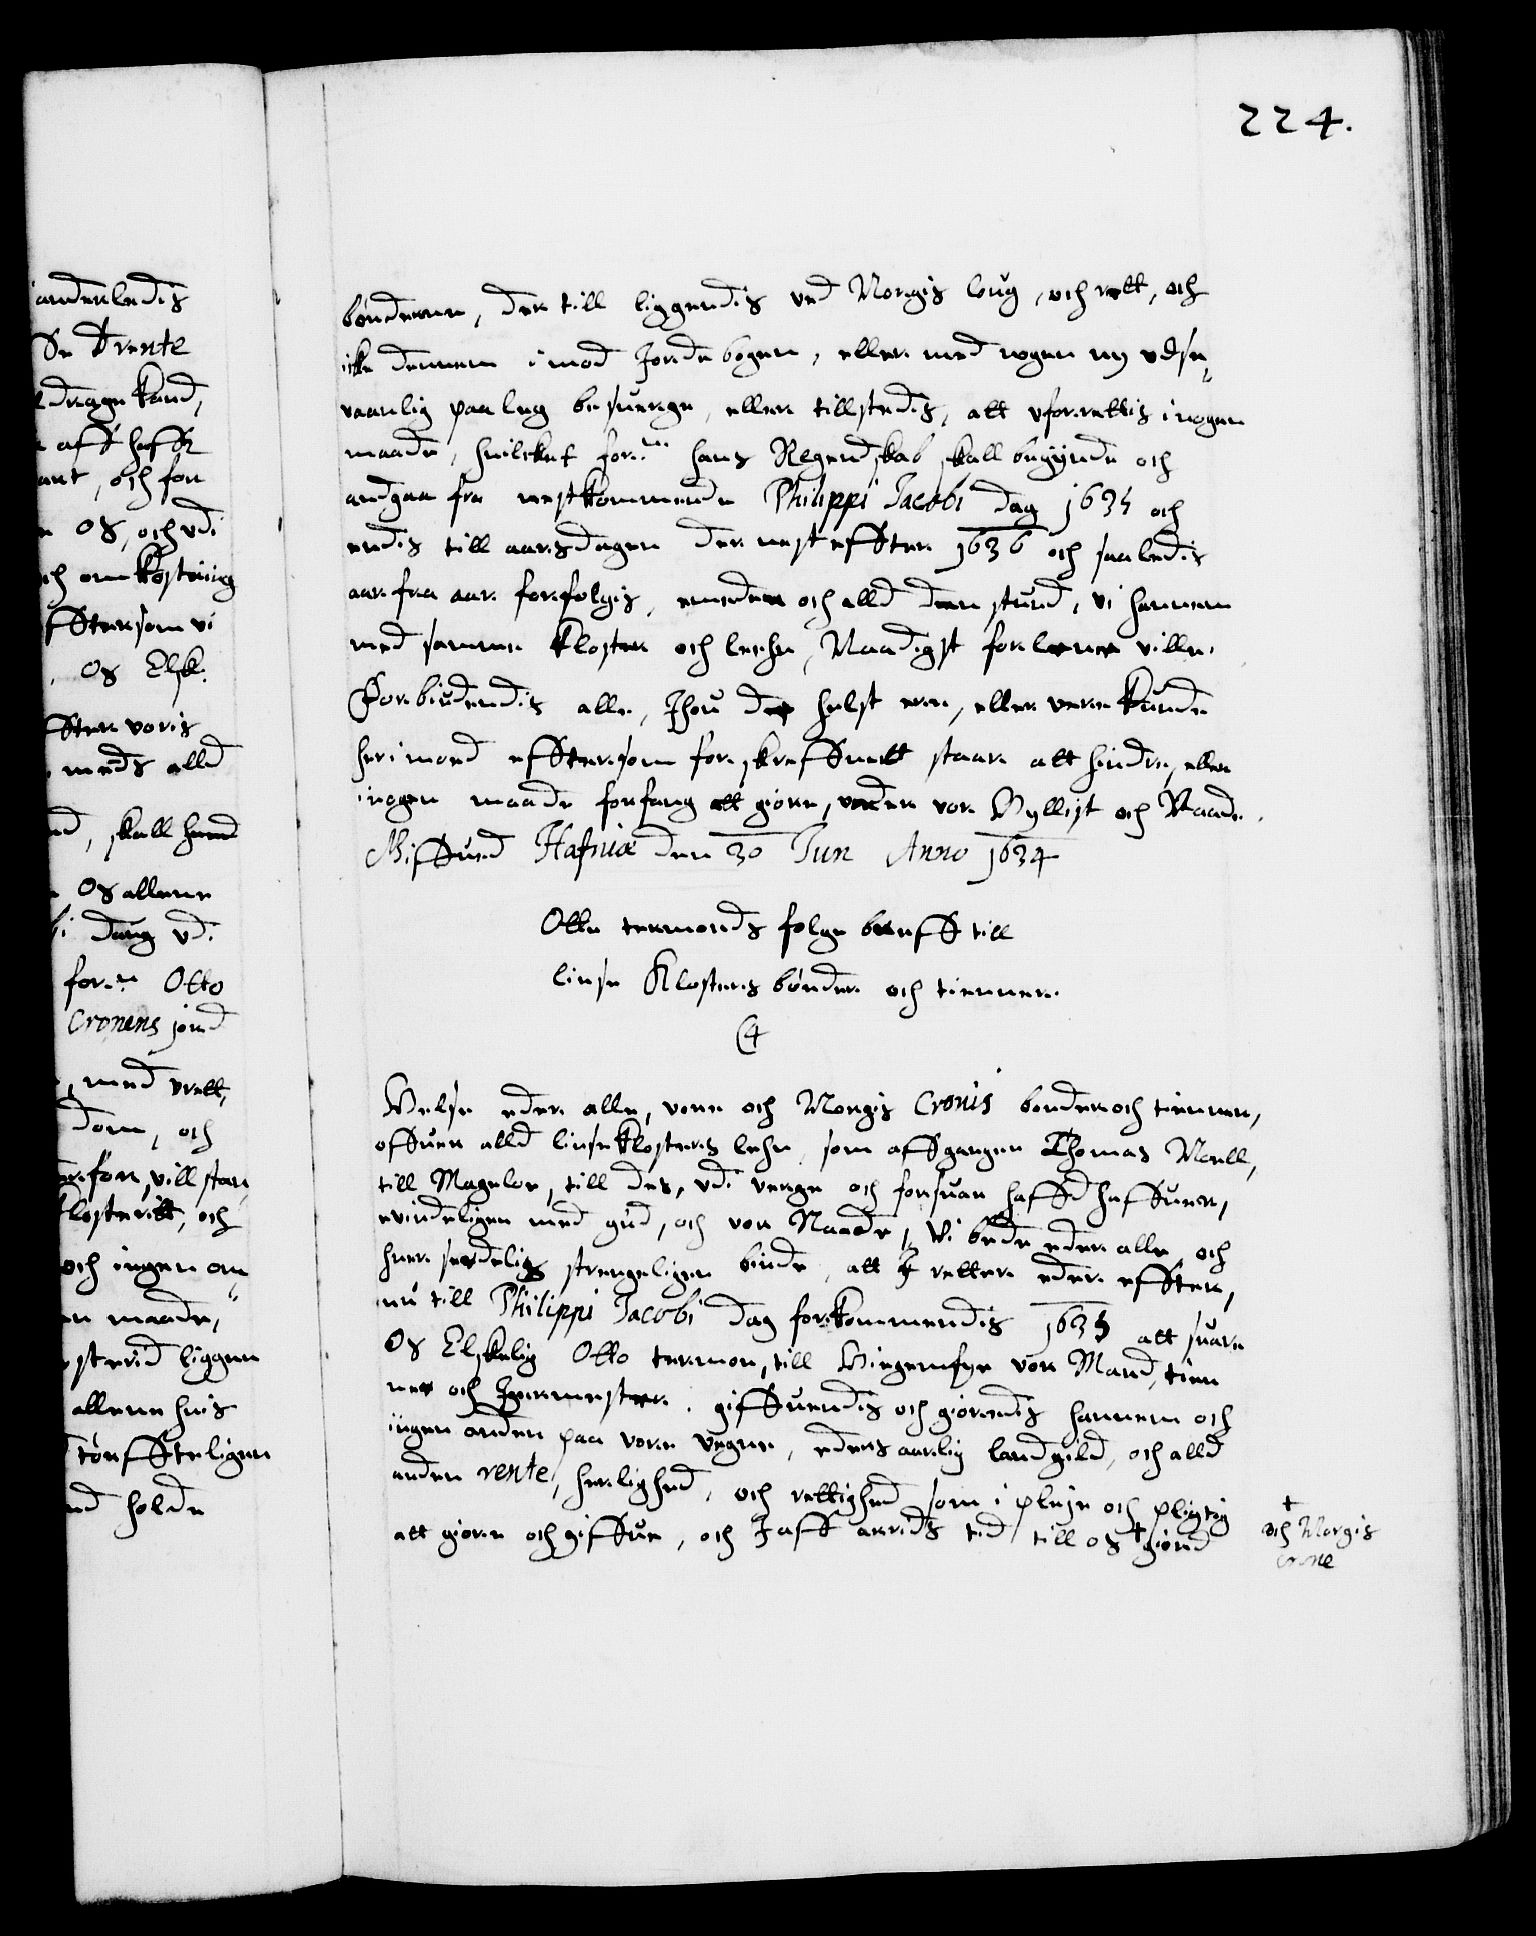 224.
anderledis
Se Drente
drage kand,
aff hafft
ant, och for
OS, och vdi
ch omkostning
fftersom vi
Os Elsk:
ffter voris
meds alld
skall hand
OS allene
dag vdi
for.ne Otto
Cronens jord
, med vrett,
dom, och
for, vill staa,
klosteritt, och
och ingen an
maade,
sterid liggen
allene huis
tørffteligen
holde
bønderne, der till liggendis ved Norgis loug, och rett, och
icke dennem imod Jordebogen, eller med nogen ny vdse„
vaanlig paaleg besuerge, eller tillstedis, att vforrettis i nogen
maade, huilcket for.ne hans Regendskab skall begynde och
andgaa fra nestkommende Philippi Jacobi dag 1635 och
endis till aarsdagen der nest effter 1636 och saaledis
aar fra aar forfølgis, emeden och alld den stund, vi hannem
med samme kloster och lehn, Naadigst forlene ville.
Forbiudendis alle, Ihuo de helst ere, eller vere kunde
heri moed efftersom forskreffuett staar att hindre, eller
i nogen maade forfang att giøre, vnder vor Hyllist och Naade.
Giffued Hafniæ den 30 Jun Anno 1634
Otte termonds følge breff till
linse Klosters bønder och tienner.
Helse eder alle, vore och Norgis Cronis bonder och tienner,
offuer alld linseklosters lehn, som affgangen Thomas Noell,
till Mageløe, till des, vdi verge och forsuar hafft haffuer,
evindeligen med gud, och vor Naade, Vi bede eder alle och
huer serdelis strengeligen biude, att I retter eder effter,
nu till Philippi Jacobi dag førkommendis 1635 att suare
Os Elskelig Otto termon, till Birgernsse vor Mand, tien
ner och Jeermester. giffuendis och giørendis hannem och
ingen anden paa vore vegne, eders aarlig landgild, och alld
anden rente, herlighed, och rettighed som i pleje och pligtig
att giøre och giffue, och I aff arrilds tid till os + giord
+
och Norgis
Crone